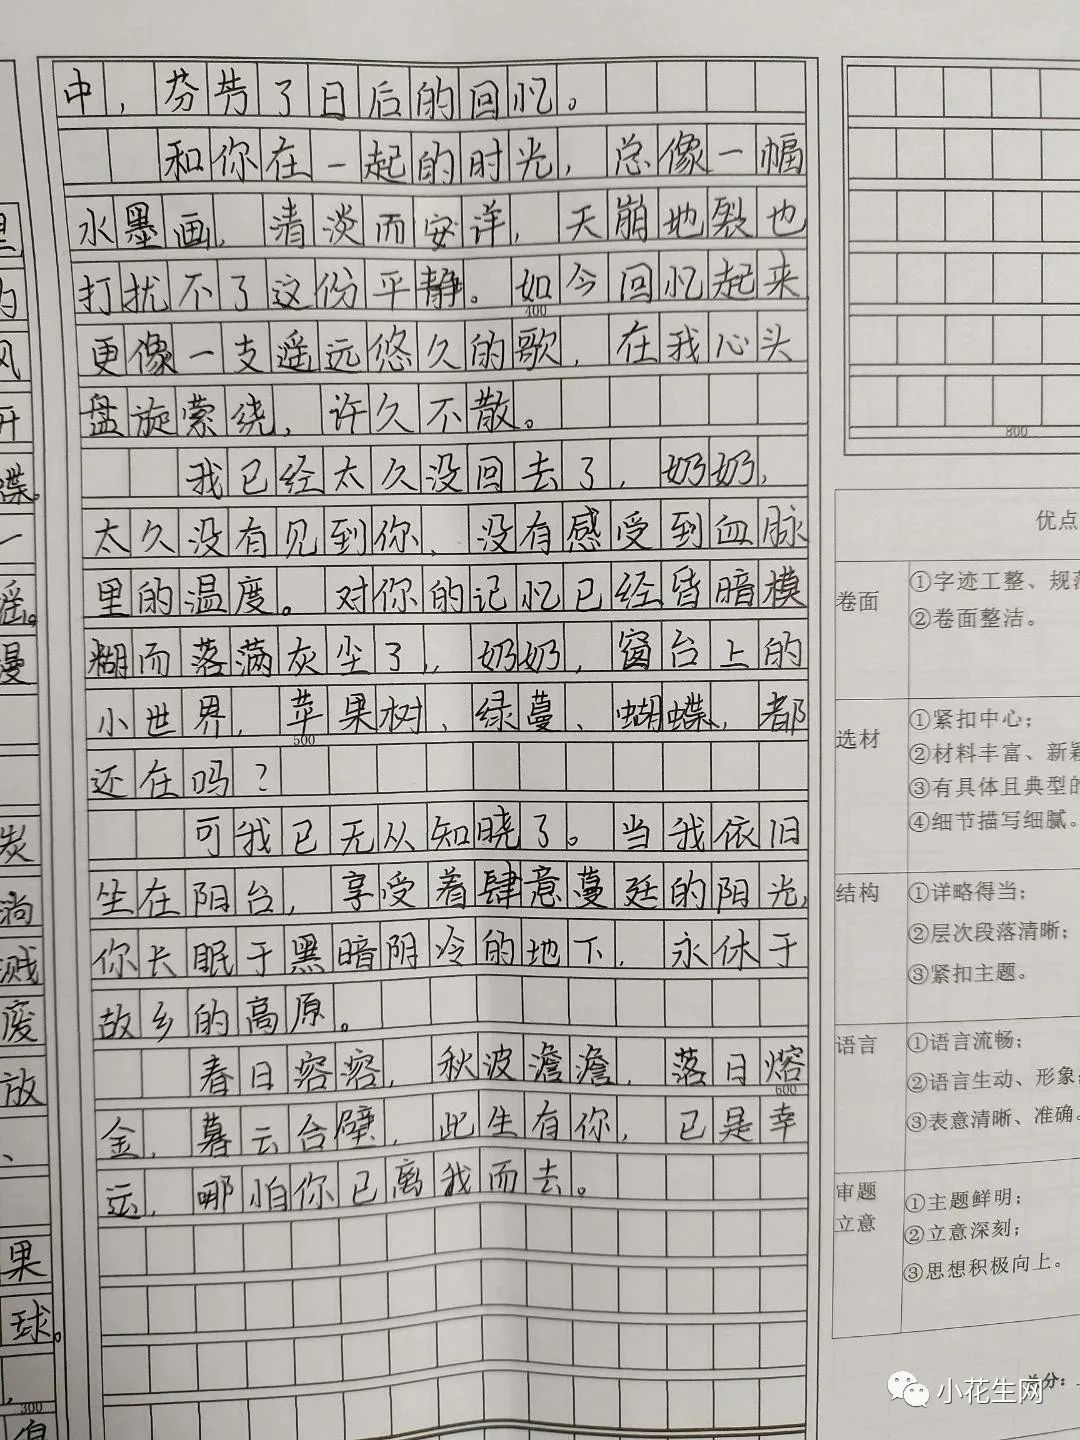 中，芬芳了日后的回忆。
和你在一起的时光，总像一幅
水墨画，清淡而安详，天崩地裂也
打扰不了这份平静。如今回忆起来
400
更像一支遥远悠久的歌，在我心头
盘旋萦绕，许久不散。
我已经太久没回去了，奶奶，
太久没有见到你，没有感受到血脉
里的温度。对你的记忆已经皆暗模
糊而落满灰尘了，奶奶，窗台上的
小世界，苹果树、绿蔓、蝴蝶，都
500
还在吗？
可我已无从知晓了。当我依旧
坐在阳台，享受着肆意蔓延的阳光，
你长眠于黑暗阴冷的地下，永休于
故乡的高原。
春日容容，秋波澹澹，落日熔
600
金，暮云合璧，此生有你，已是幸
运，哪怕你已离我而去。
里
风
开
蝶。
一
谣。
漫
炭
淌
溅
废
放
、
果
球。
300
800
优点
卷面
①字迹工整、规范
②卷面整洁。
选材
①紧扣中心；
②材料丰富、新颖
③有具体且典型的
④细节描写细腻。
结构
①详略得当；
②层次段落清晰；
③紧扣主题。
语言
①语言流畅；
②语言生动、形象；
③表意清晰、准确。
审题
立意
①主题鲜明；
②立意深刻；
③思想积极向上。
总分：
小花生网